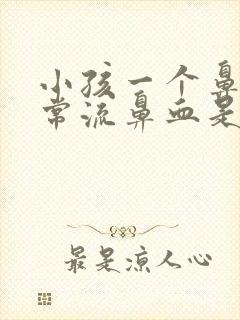 小孩一个鼻
常流鼻血是
最是凉人心